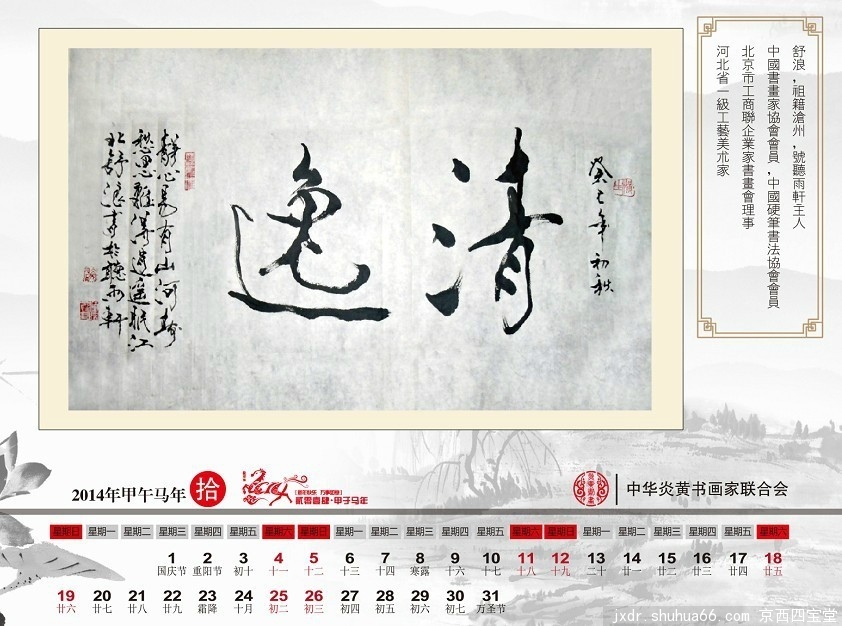 舒浪，祖籍滄州，號聽雨軒主人
中國書畫家協會會員，中國硬筆書法協會會員
北京市工商聯企業家書畫會理事
河北省一級工藝美朮家
癸巳年初秋
清逸
心易有山河
愁思難逍遥眠江
北舒浪書於聽雨軒
2014年甲午马年 拾
贰零壹肆·甲子马年
中华炎黄书画家联合会
星期日 星期一 星期二 星期三 星期四 星期五 星期六 星期日 星期一 星期二 星期三 星期四 星期五 星期六 星期日 星期一 星期二 星期三 星期四 星期五 星期六
1 2 3 4 5 6 7 8 9 10 11 12 13 14 15 16 17 18
国庆节 重阳节 初十 十一 十二 十三 十四 寒露 十六 十七 十八 十九 二十 廿一 廿二 廿三 廿四 廿五
19 20 21 22 23 24 25 26 27 28 29 30 31
廿六 廿七 廿八 廿九 霜降 十月 初二 初三 初四 初五 初六 初七 万圣节
jxdr.shuhua66.com 京西四宝堂